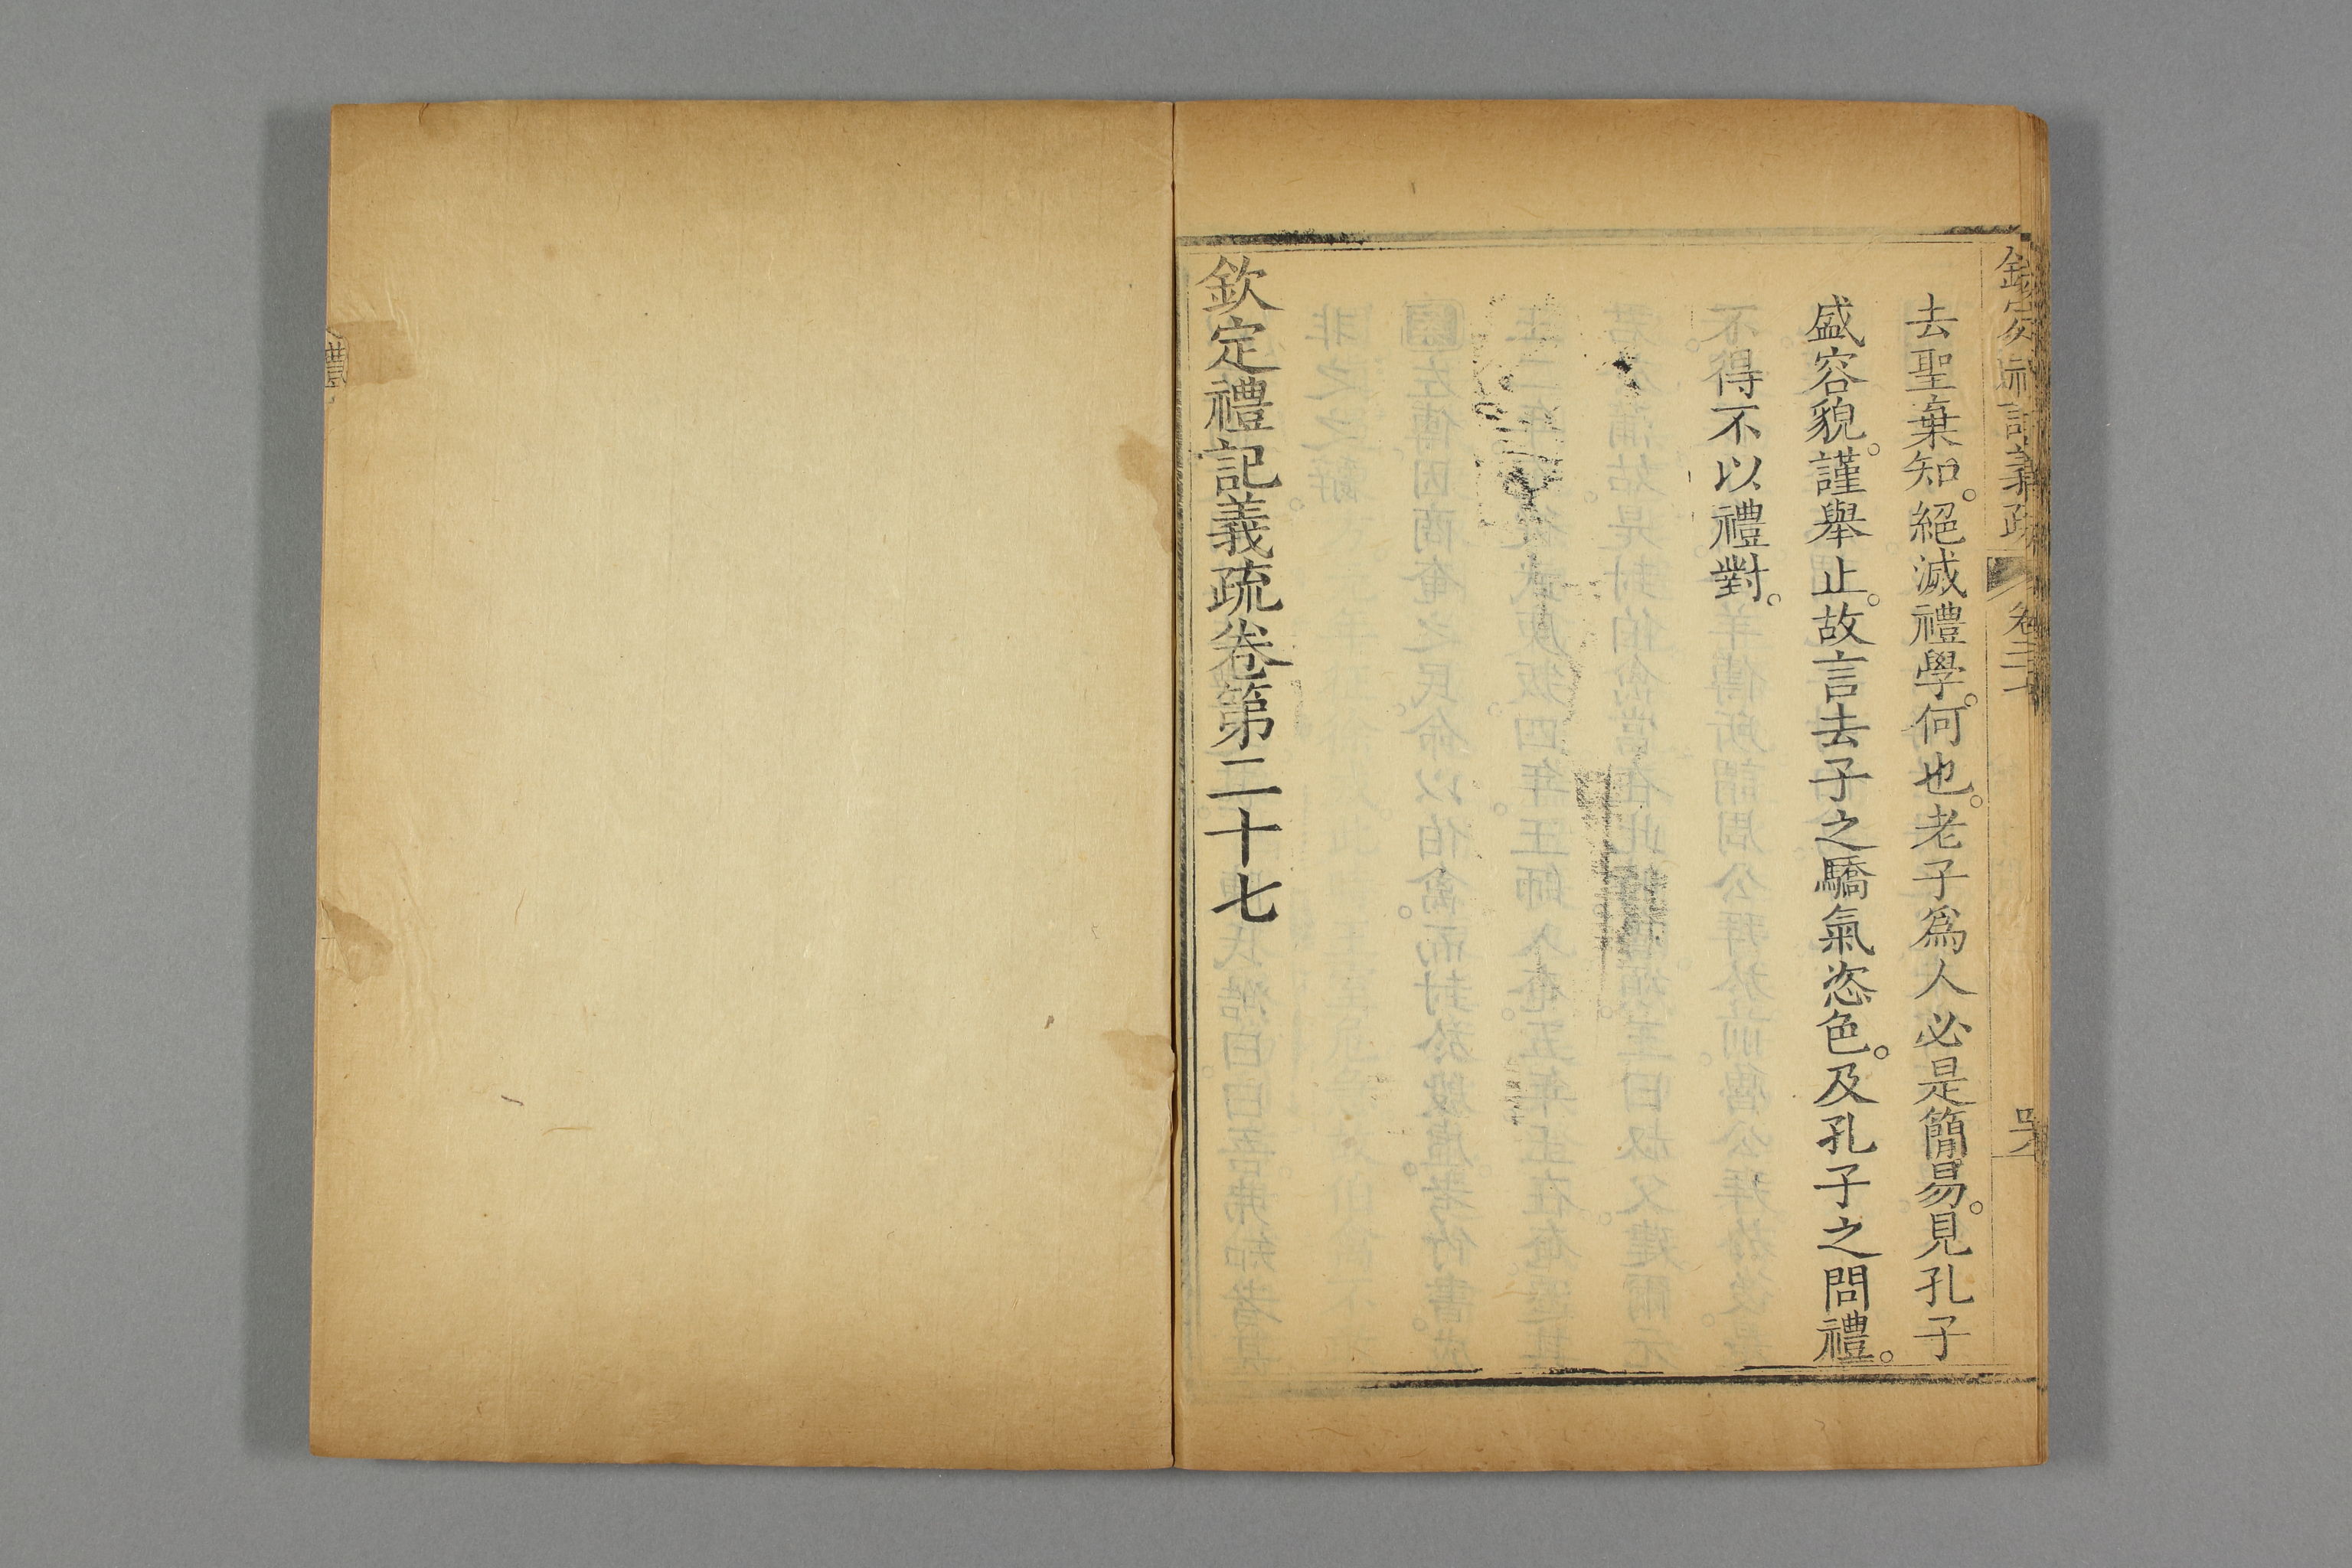 欽定禮記義疏 卷二十七
去聖棄知。絕滅禮學。何也。老子爲人必是簡易。見孔子
盛容貌。謹舉止。故言去子之驕氣恣色。及孔子之問禮。
不得不以禮對。
欽定禮記義疏卷第二十七